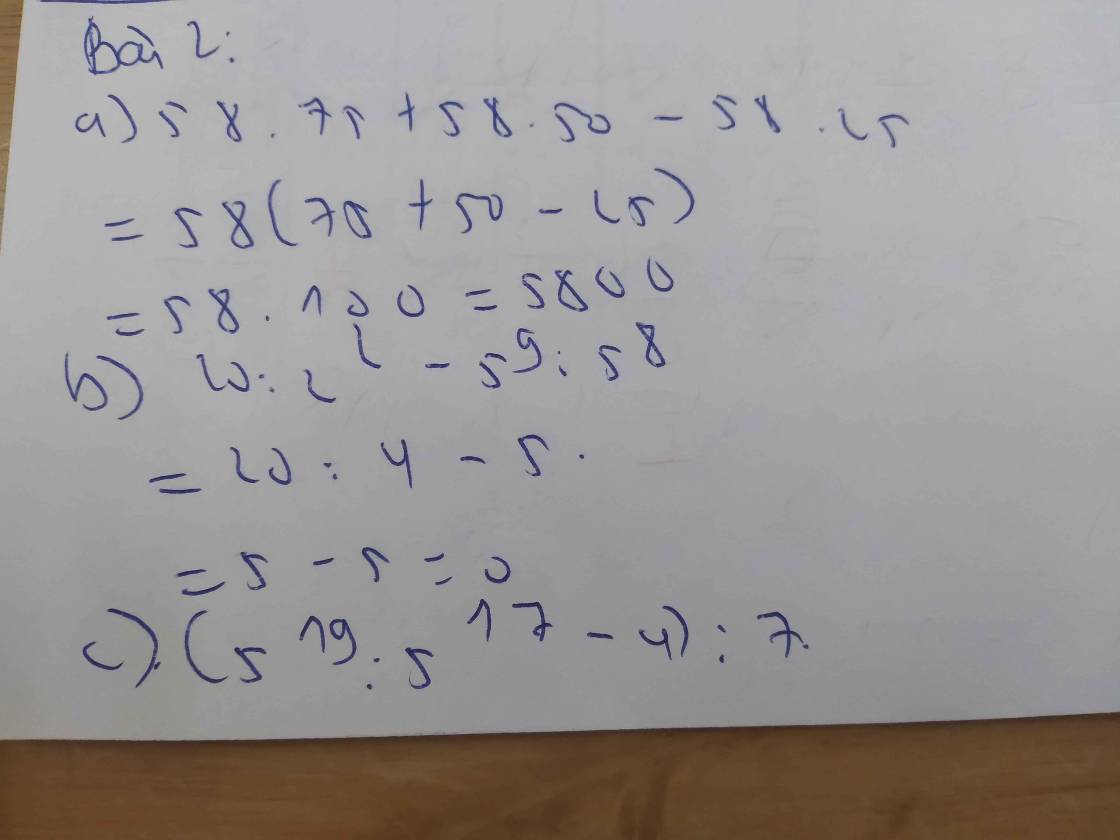 Bài 2:
a) 58 . 75 + 58 . 50 - 58 . 25
= 58 (75 + 50 - 25)
= 58 . 100 = 5800
b) 20 : 2² - 5⁹ : 5⁸
= 20 : 4 - 5 .
= 5 - 5 = 0
c). (5¹⁹ : 5¹⁷ - 4) : 7.